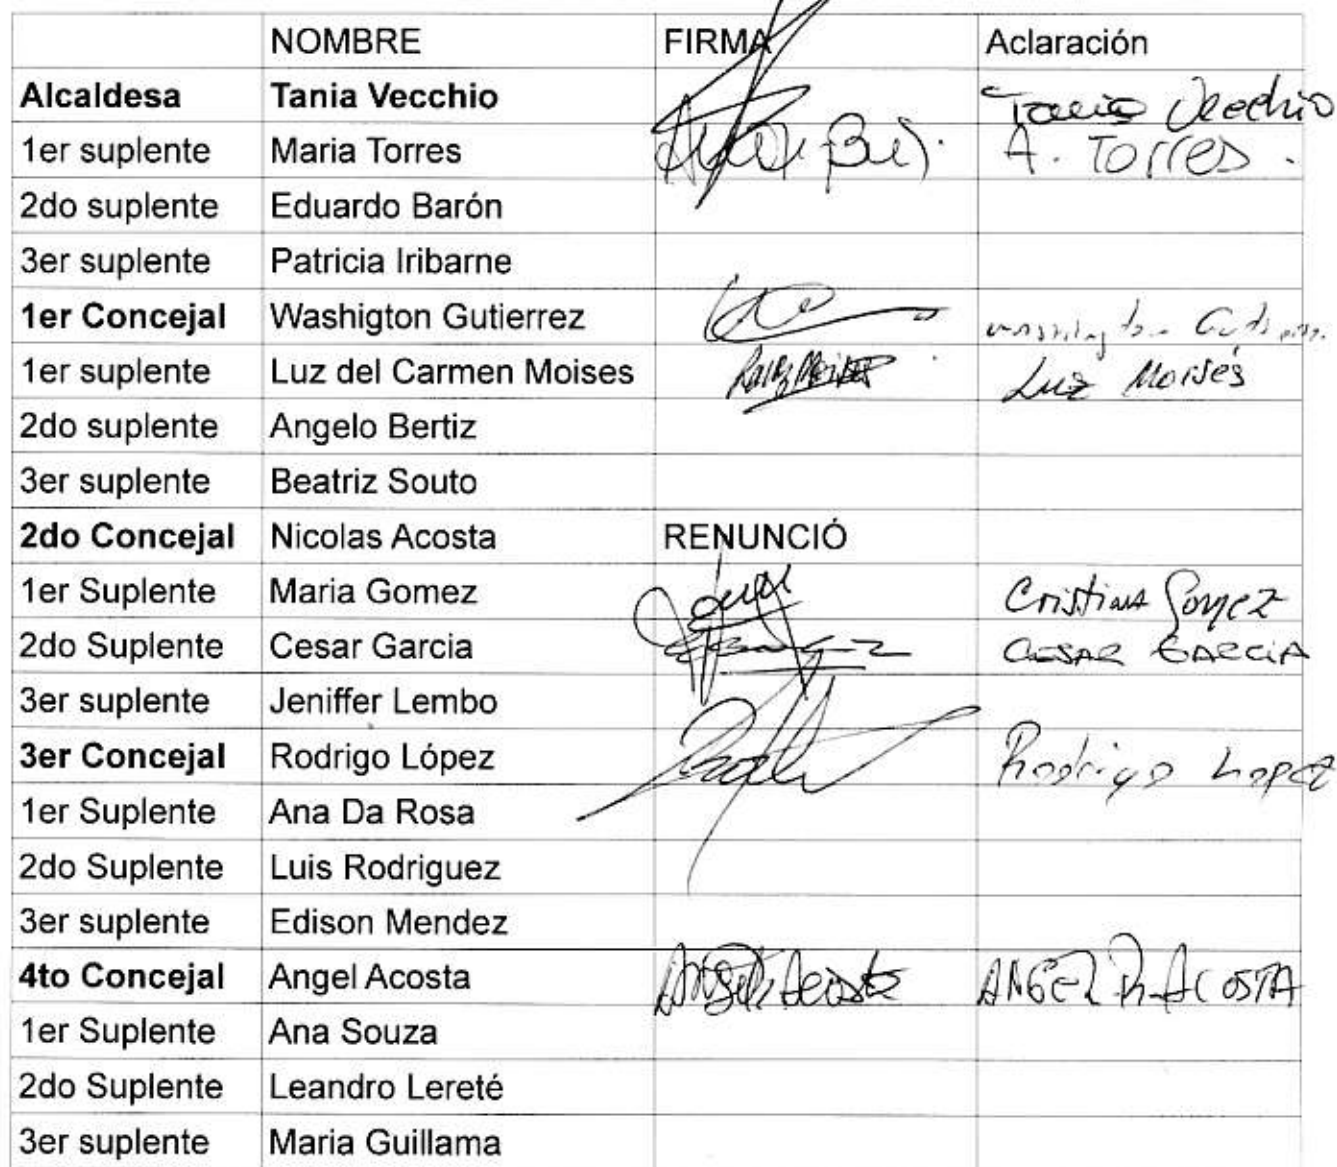 NOMBRE FIRMA Aclaración
Alcaldesa Tania Vecchio Tania Vecchio
1er suplente Maria Torres A. Torres.
2do suplente Eduardo Barón
3er suplente Patricia Iribarne
1er Concejal Washigton Gutierrez
1er suplente Luz del Carmen Moises Luz Moisés
2do suplente Angelo Bertiz
3er suplente Beatriz Souto
2do Concejal Nicolas Acosta RENUNCIÓ
1er Suplente Maria Gomez Cristina Gomez
2do Suplente Cesar Garcia CESAR GARCIA
3er suplente Jeniffer Lembo
3er Concejal Rodrigo López Rodrigo Lopez
1er Suplente Ana Da Rosa
2do Suplente Luis Rodriguez
3er suplente Edison Mendez
4to Concejal Angel Acosta Angel R. Acosta ANGEL R. ACOSTA
1er Suplente Ana Souza
2do Suplente Leandro Lereté
3er suplente Maria Guillama